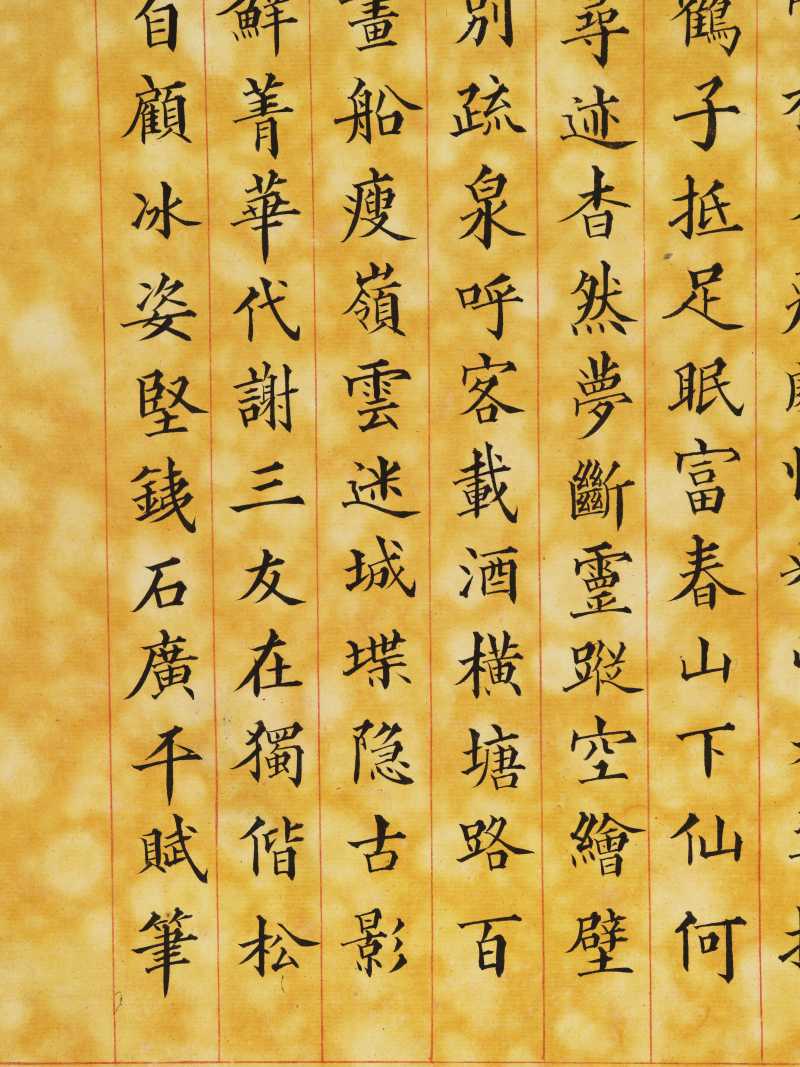 鶴子抵足眠富春山下仙何
尋迹杳然夢斷霊蹤空繪壁
別疏泉呼客載酒橫塘路百
畫船瘦嶺雲迷城堞隐古影
鮮菁華代謝三友在獨偕松
自顧冰姿堅銕石廣平賦筆